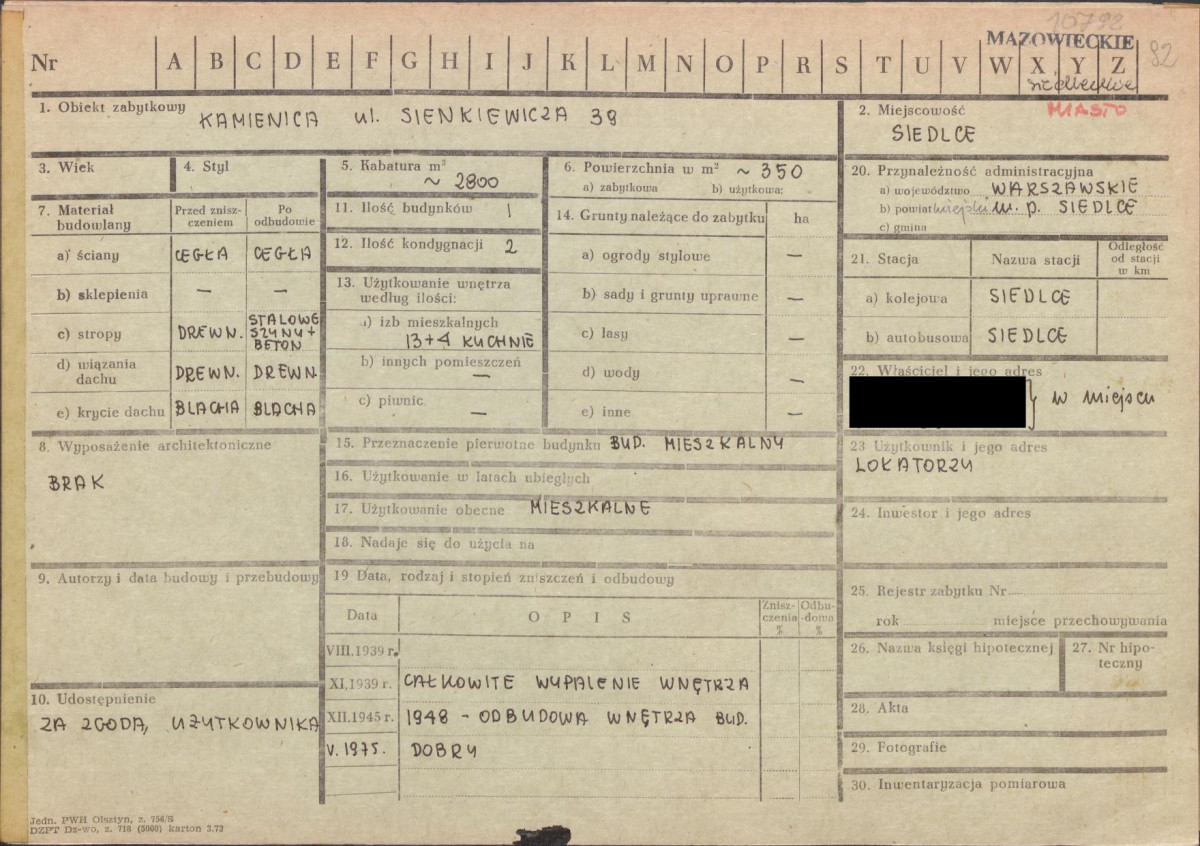 10792
MAZOWIECKIE
92
Nr A B C D E F G H I J K L M N O P R S T U V W X Y Z
siedleckie
1. Obiekt zabytkowy KAMIENICA ul. SIENKIEWICZA 39
2. Miejscowość MIASTO
SIEDLCE
3. Wiek
4. Styl
5. Kabatura m³
~ 2800
6. Powierzchnia w m² ~ 350
a) zabytkowa b) użytkowa:
20. Przynależność administracyjna
a) województwo WARSZAWSKIE
b) powiat miejski m. p. SIEDLCE
c) gmina
7. Materiał budowlany
Przed zniszczeniem
Po odbudowie
a) ściany CEGŁA CEGŁA
b) sklepienia — —
c) stropy DREWN. STALOWE SZYNY + BETON
d) wiązania dachu DREWN. DREWN.
e) krycie dachu BLACHA BLACHA
11. Ilość budynków 1
12. Ilość kondygnacji 2
13. Użytkowanie wnętrza
według ilości:
a) izb mieszkalnych
13+4 KUCHNIE
b) innych pomieszczeń
—
c) piwnic —
14. Grunty należące do zabytku ha
a) ogrody stylowe —
b) sady i grunty uprawne —
c) lasy —
d) wody —
e) inne —
21. Stacja Nazwa stacji Odległość od stacji w km
a) kolejowa SIEDLCE
b) autobusowa SIEDLCE
22. Właściciel i jego adres
w miejscu
8. Wyposażenie architektoniczne
BRAK
15. Przeznaczenie pierwotne budynku BUD. MIESZKALNY
16. Użytkowanie w latach ubiegłych
17. Użytkowanie obecne MIESZKALNE
18. Nadaje się do użycia na
23 Użytkownik i jego adres
LOKATORZY
24. Inwestor i jego adres
9. Autorzy i data budowy i przebudowy
19 Data, rodzaj i stopień zniszczeń i odbudowy
Data OPIS Zniszczenia % Odbu-dowa %
VIII.1939 r.
XI.1939 r. CAŁKOWITE WYPALENIE WNĘTRZA
XII.1945 r. 1948 - ODBUDOWA WNĘTRZA BUD.
V. 1975. DOBRY
25. Rejestr zabytku Nr
rok miejsce przechowywania
26. Nazwa księgi hipotecznej
27. Nr hipoteczny
10. Udostępnienie
ZA ZGODĄ UŻYTKOWNIKA
28. Akta
29. Fotografie
30. Inwentaryzacja pomiarowa
Jedn. PWH Olsztyn, z. 756/S
DZPT Dz-wo, z. 718 (5000) karton 3.73